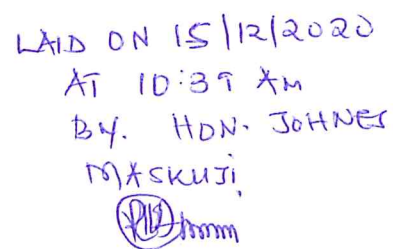 LAID ON 15/12/2020
AT 10:39 AM
BY. HON. JOHNES
MASKUJI